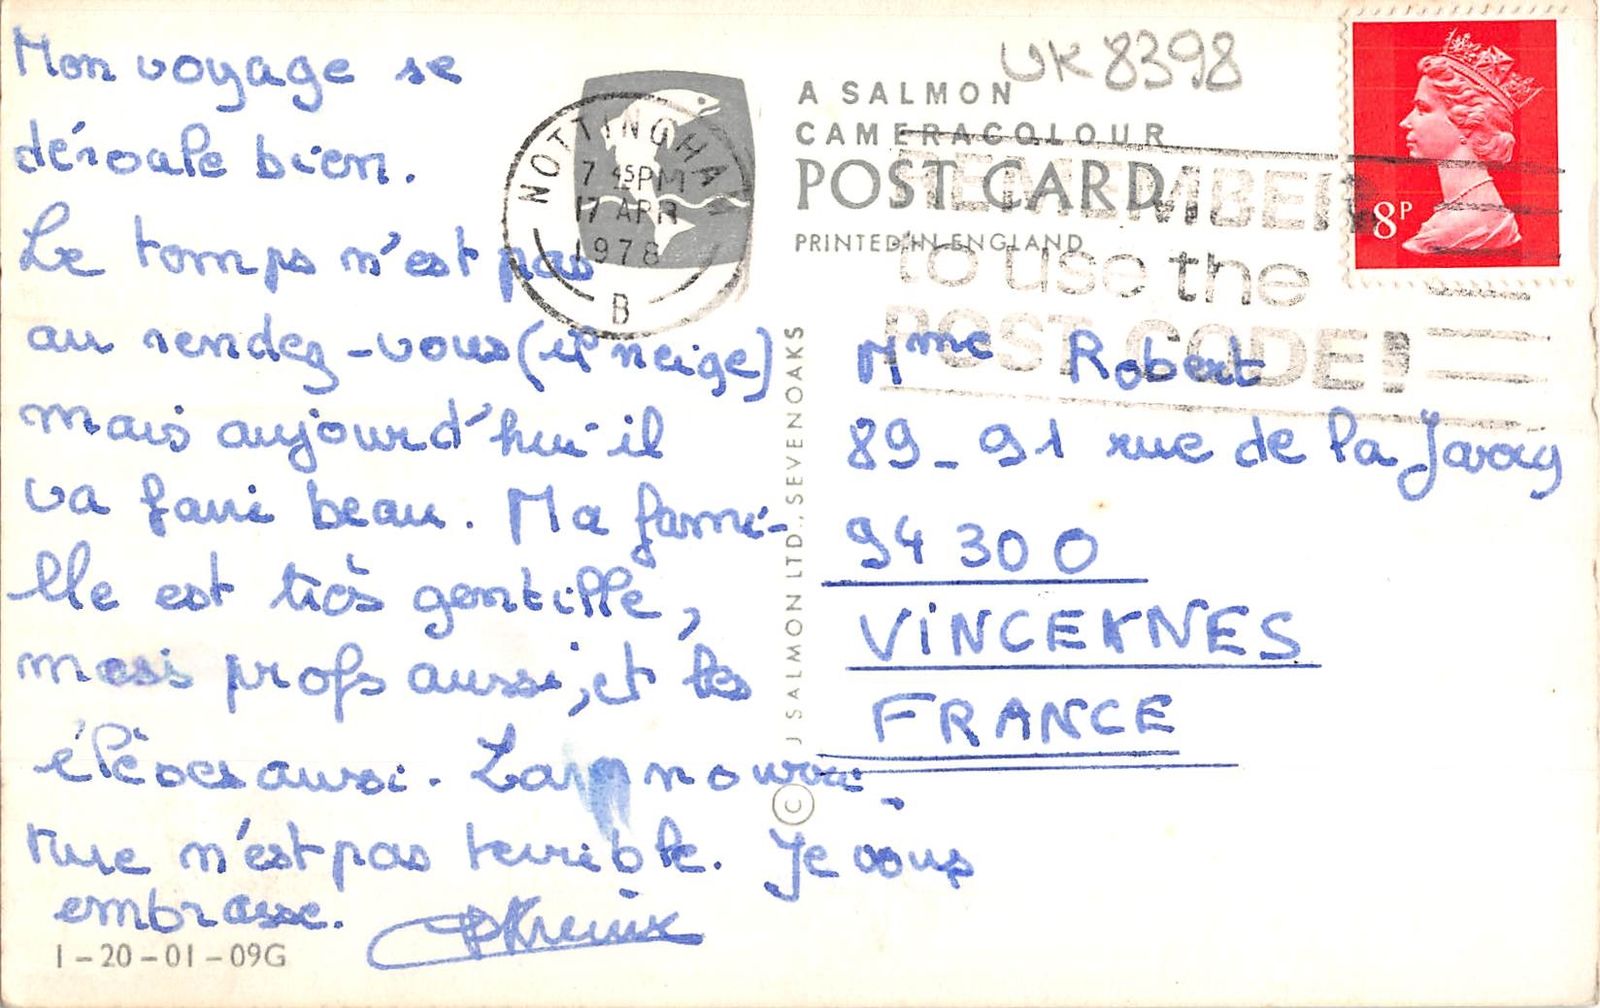 Mon voyage se
déroule bien.
Le temps n'est pas
au rendez-vous (il neige)
mais aujourd'hui il
va faire beau. Ma fami-
lle est très gentille,
mes profs aussi, et les
élèves aussi. La nourri-
ture n'est pas terrible. Je vous
embrasse.
1-20-01-09G
NOTTINGHAM
7 45PM
17 APR
1978
B
UK 8398
A SALMON
CAMERACOLOUR
POST CARD
PRINTED IN ENGLAND
REMEMBER
to use the
POST CODE!
8P
© J SALMON LTD., SEVENOAKS
Mme Robert
89-91 rue de la Jarry
94300
VINCENNES
FRANCE